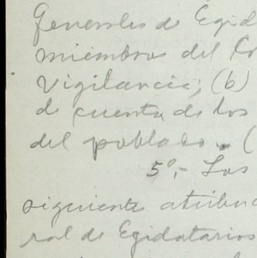 Generales de Egid
miembros del Co
Vigilancia; (b)
de cuenta de los
del poblado. (
5º.- Las
siguiente atribu
ral de Egidatarios